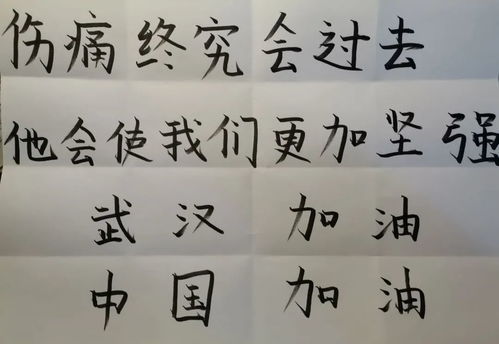 伤痛终究会过去
他会使我们更加坚强
武汉 加油
中国 加油